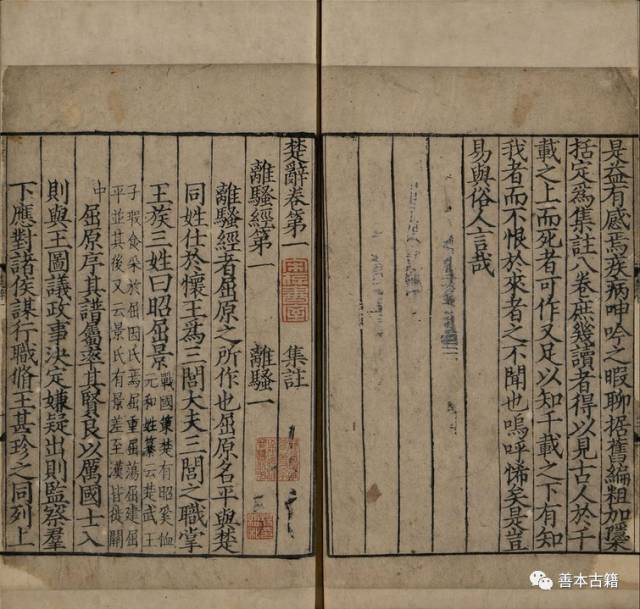 是益有感焉疾病呻吟之暇聊据舊編粗加隱栝
括定爲集註八卷庶幾讀者得以見古人於千
載之上而死者可作又足以知千載之下有知
我者而不恨於來者之不聞也嗚呼悕矣是豈
易與俗人言哉
楚辭卷第一 集註
離騷經第一 離騷一
離騷經者屈原之所作也屈原名平與楚
同姓仕於懷王爲三閭大夫三閭之職掌
王族三姓曰昭屈景
戰國策楚有昭奚恤
元和姓纂云楚武王
子瑕食采於屈因氏焉屈重屈蕩屈建屈
平並其後又云景氏有景差至漢皆徙關
中
屈原序其譜屬率其賢良以厲國士入
則與王圖議政事決定嫌疑出則監察羣
下應對諸侯謀行職脩王甚珍之同列上
善本古籍